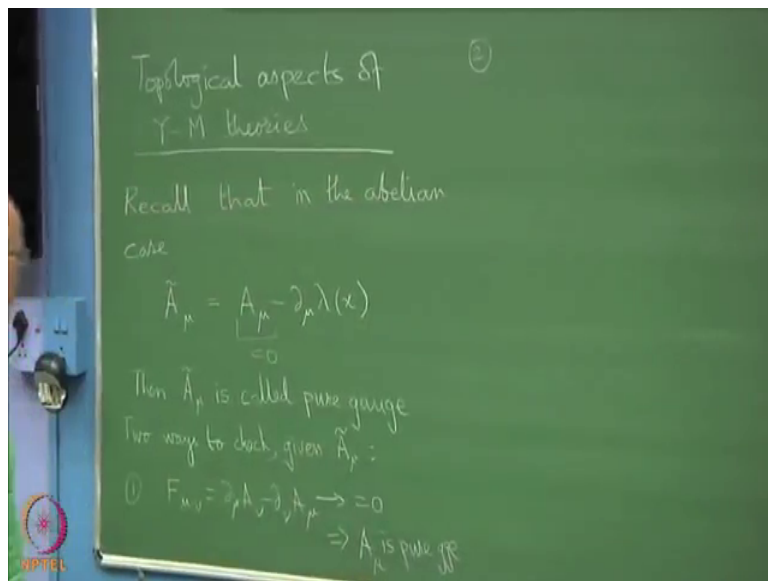 Topological aspects of
Y-M theories
Recall that in the abelian
case
Ã_μ = A_μ - ∂_μ λ(x)
=0
Then Ã_μ is called pure gauge
Two ways to check, given Ã_μ :
① F_μν = ∂_μ A_ν - ∂_ν A_μ → =0
⇒ A_μ is pure gge
②
NPTEL